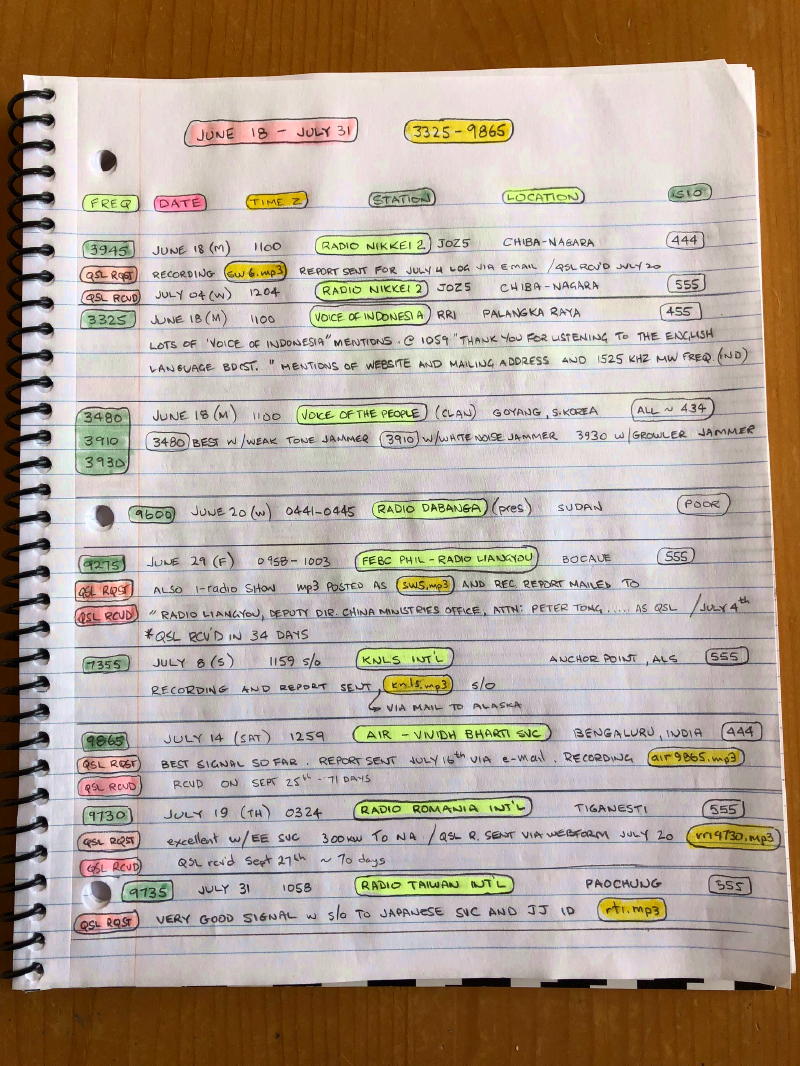 JUNE 18 - JULY 31 3325-9865
FREQ DATE TIME Z STATION LOCATION SIO
3945 JUNE 18 (M) 1100 RADIO NIKKEI 2 JOZ5 CHIBA-NAGARA 444
QSL RQST RECORDING sw6.mp3 REPORT SENT FOR JULY 4 LOG VIA EMAIL / QSL RCV'D JULY 20
QSL RCVD JULY 04 (W) 1204 RADIO NIKKEI 2 JOZ5 CHIBA-NAGARA 555
3325 JUNE 18 (M) 1100 VOICE OF INDONESIA RRI PALANGKA RAYA 455
LOTS OF 'VOICE OF INDONESIA" MENTIONS. @ 1059 "THANK YOU FOR LISTENING TO THE ENGLISH
LANGUAGE BDCST. " MENTIONS OF WEBSITE AND MAILING ADDRESS AND 1525 KHZ MW FREQ. (IND)
3480 JUNE 18 (M) 1100 VOICE OF THE PEOPLE (CLAN) GOYANG, S. KOREA ALL ~ 434
3910 3480 BEST W/WEAK TONE JAMMER 3910 W/WHITE NOISE JAMMER 3930 W/GROWLER JAMMER
3930
9600 JUNE 20 (W) 0441-0445 RADIO DABANGA (pres) SUDAN POOR
9275 JUNE 29 (F) 0958-1003 FEBC PHIL - RADIO LIANGYOU BOCAUE 555
QSL RQST ALSO 1-radio SHOW mp3 POSTED AS sw5.mp3 AND REC REPORT MAILED TO
QSL RCVD "RADIO LIANGYOU, DEPUTY DIR. CHINA MINISTRIES OFFICE, ATTN: PETER TONG ..... AS QSL / JULY 4th
*QSL RCV'D IN 34 DAYS
7355 JULY 8 (S) 1159 s/o KNLS INT'L ANCHOR POINT, ALS 555
RECORDING AND REPORT SENT, knls.mp3 s/o
VIA MAIL TO ALASKA
9865 JULY 14 (SAT) 1259 AIR - VIVIDH BHARTI SVC BENGALURU, INDIA 444
QSL RQST BEST SIGNAL SO FAR. REPORT SENT JULY 16th VIA e-mail. RECORDING air9865.mp3
QSL RCVD RCVD ON SEPT 25th - 71 DAYS
9730 JULY 19 (TH) 0324 RADIO ROMANIA INT'L TIGANESTI 555
QSL RQST excellent w/EE SVC 300kw TO NA / QSL R. SENT VIA WEBFORM JULY 20 rri9730.mp3
QSL RCVD QSL rcv'd Sept 27th ~ 70 days
9735 JULY 31 1058 RADIO TAIWAN INT'L PAOCHUNG 555
QSL RQST VERY GOOD SIGNAL W S/O TO JAPANESE SVC AND JJ ID rti.mp3